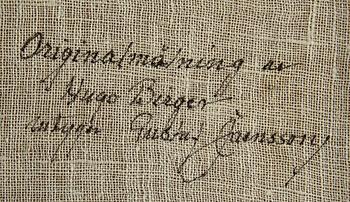 Originalmålning av
Hugo Berger
intygar Gustaf